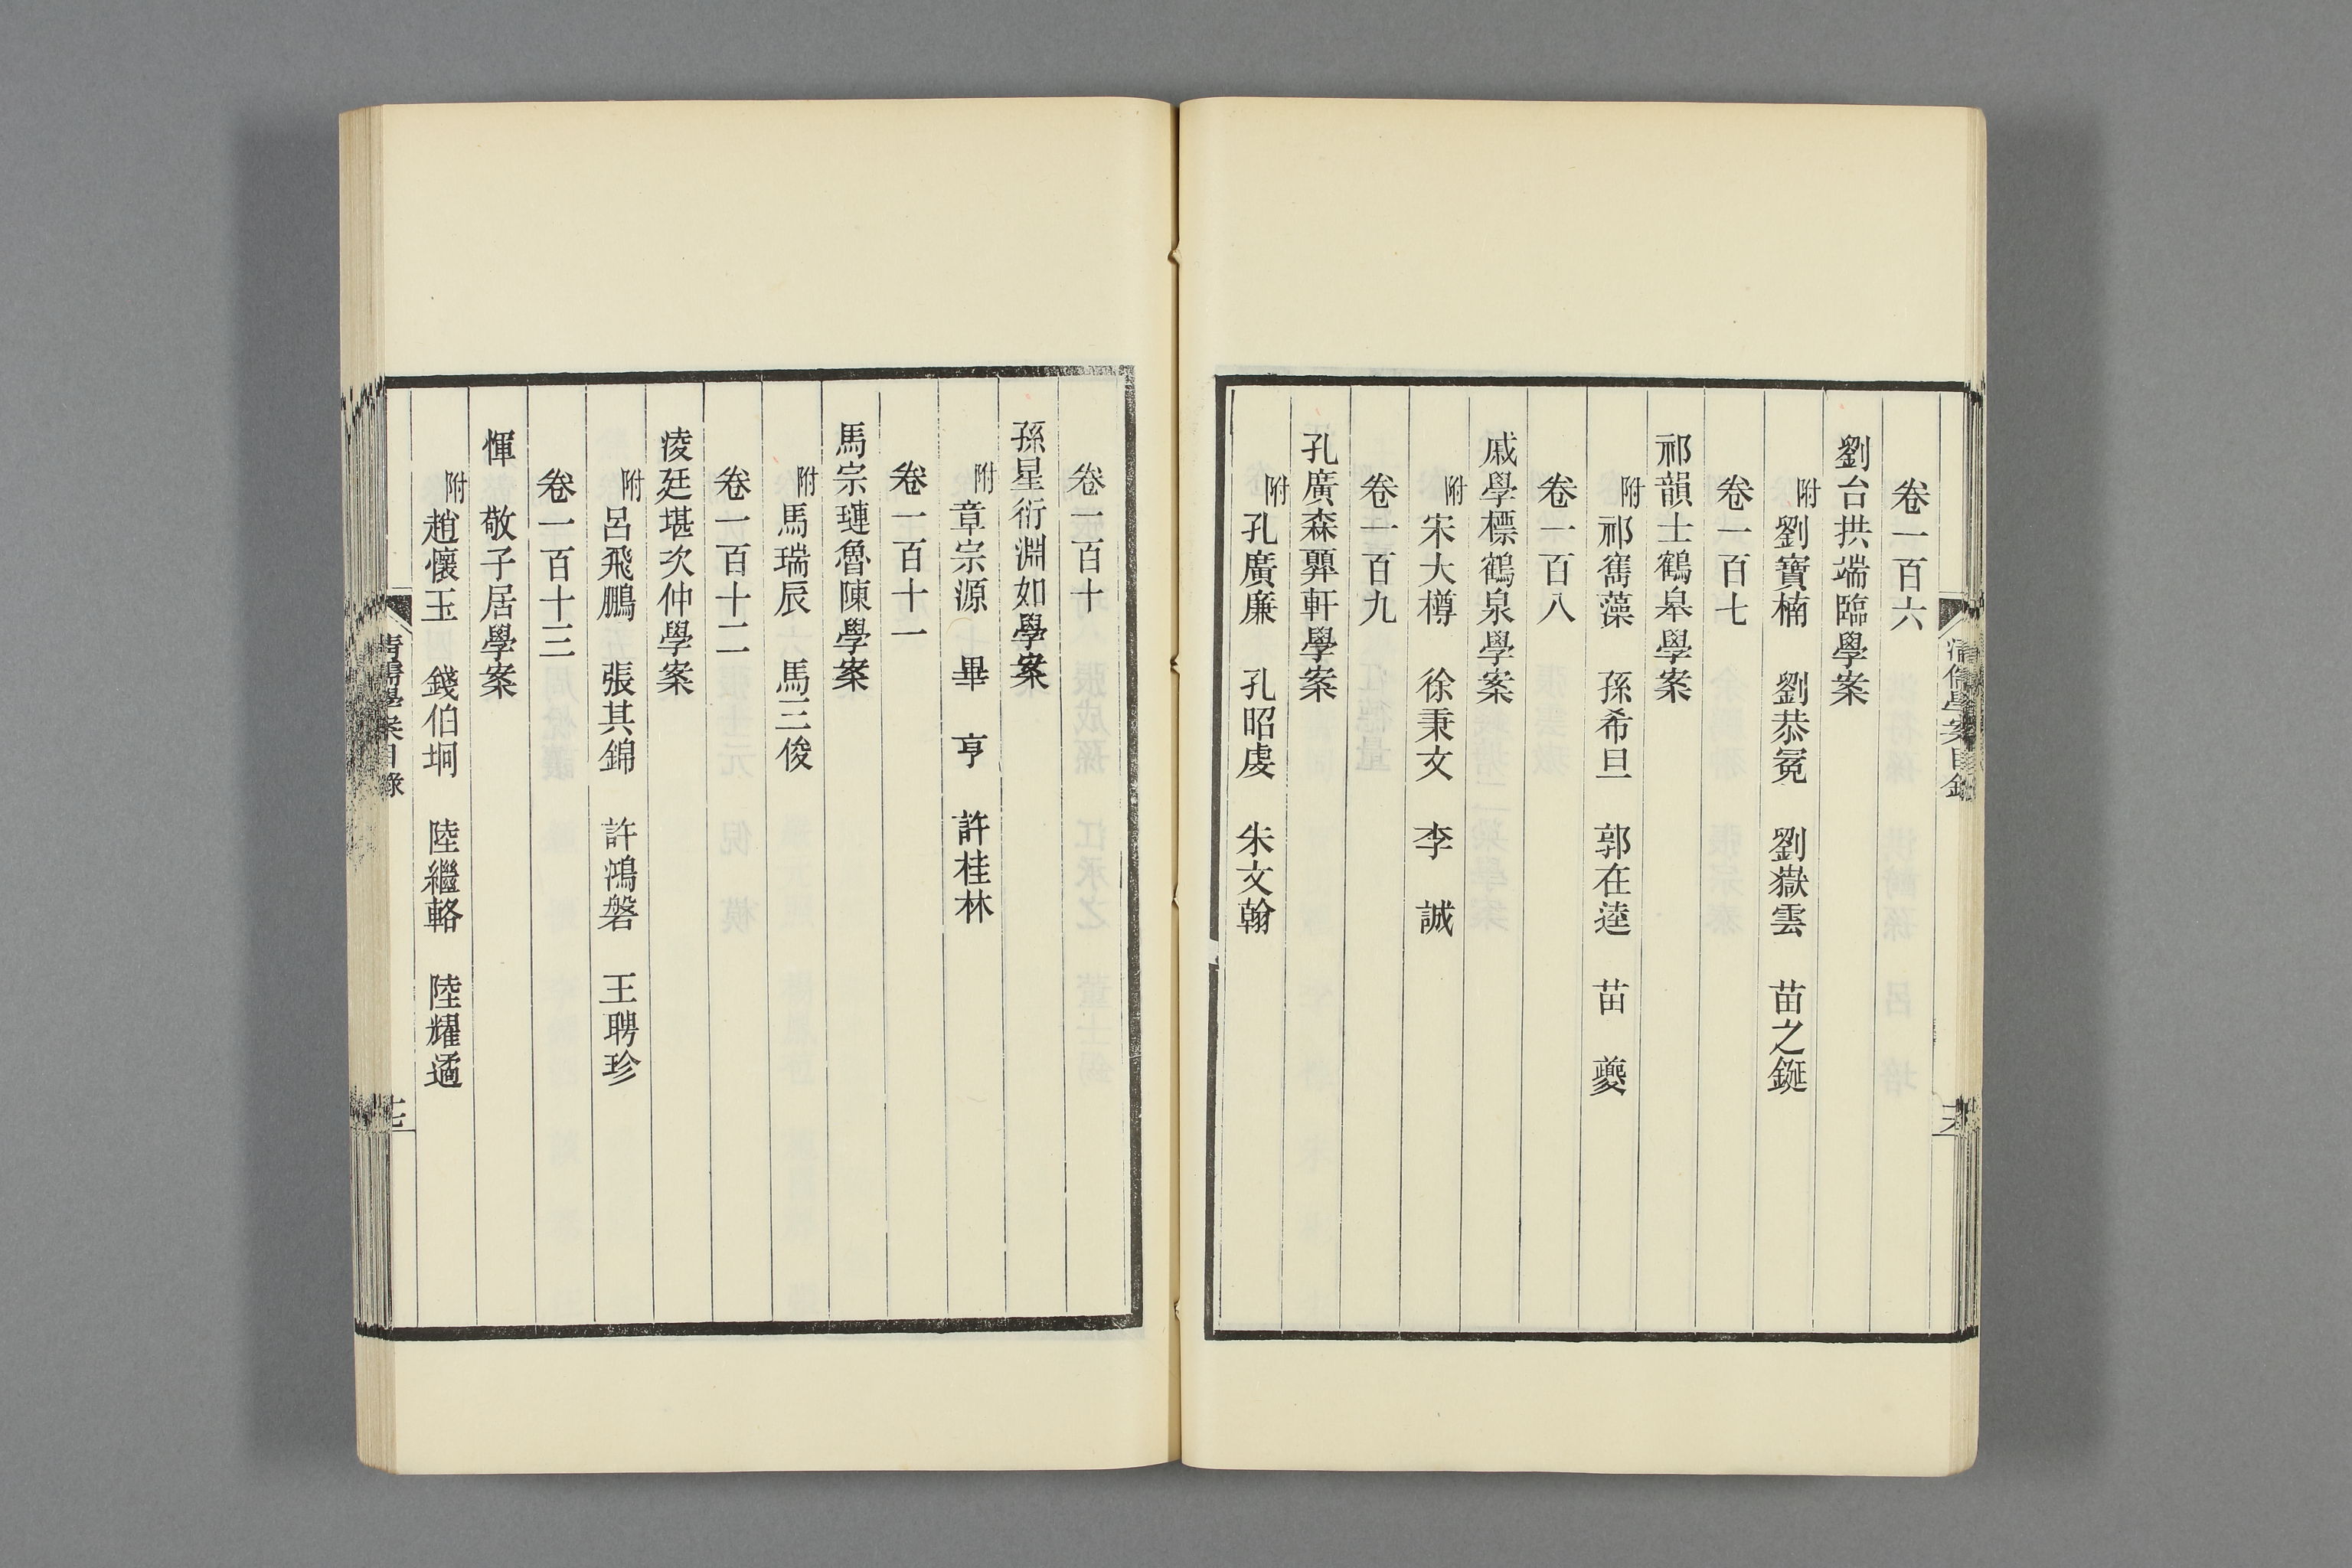 卷一百六
劉台拱端臨學案
附劉寶楠　劉恭冕　劉嶽雲　苗之鋋
卷一百七
祁韻士鶴皋學案
附祁寯藻　孫希旦　郭在逵　苗　夔
卷一百八
戚學標鶴泉學案
附宋大樽　徐秉文　李　誠
卷一百九
孔廣森顨軒學案
附孔廣廉　孔昭虔　朱文翰
卷一百十
孫星衍淵如學案
附章宗源　畢　亨　許桂林
卷一百十一
馬宗璉魯陳學案
附馬瑞辰　馬三俊
卷一百十二
凌廷堪次仲學案
附呂飛鵬　張其錦　許鴻磐　王聘珍
卷一百十三
惲　敬子居學案
附趙懷玉　錢伯坰　陸繼輅　陸耀遹
清儒學案目錄